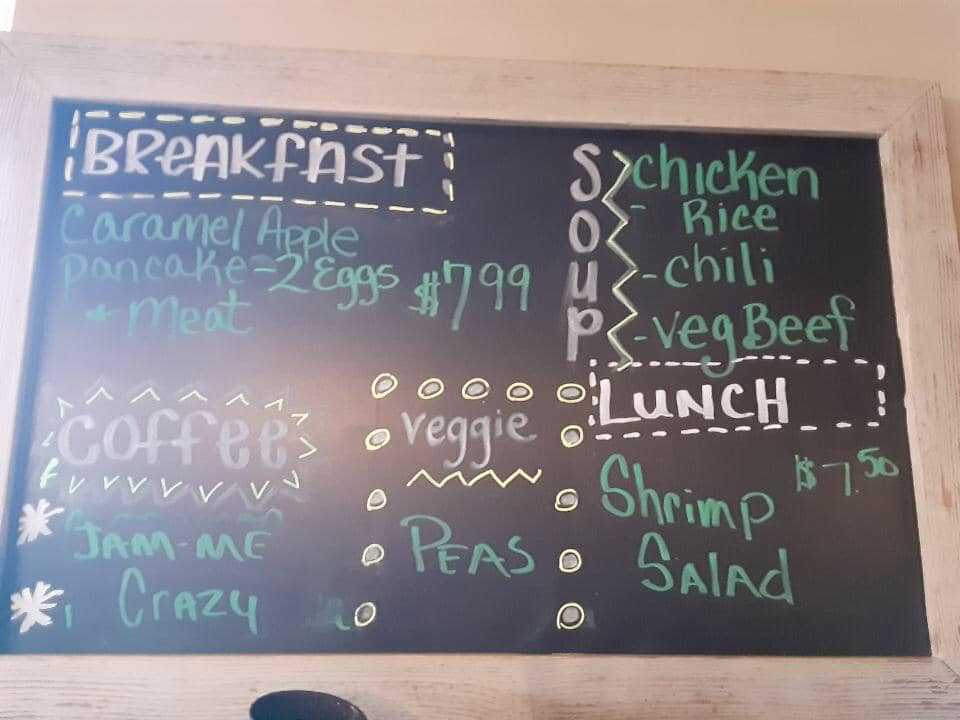 BReakfast
Caramel Apple
pancake - 2 Eggs
+ Meat
$7.99
Soup
chicken
- Rice
- chili
- veg Beef
Coffee
JAM-ME
CRAZY
veggie
PEAS
LUNCH
Shrimp
Salad
$7.50